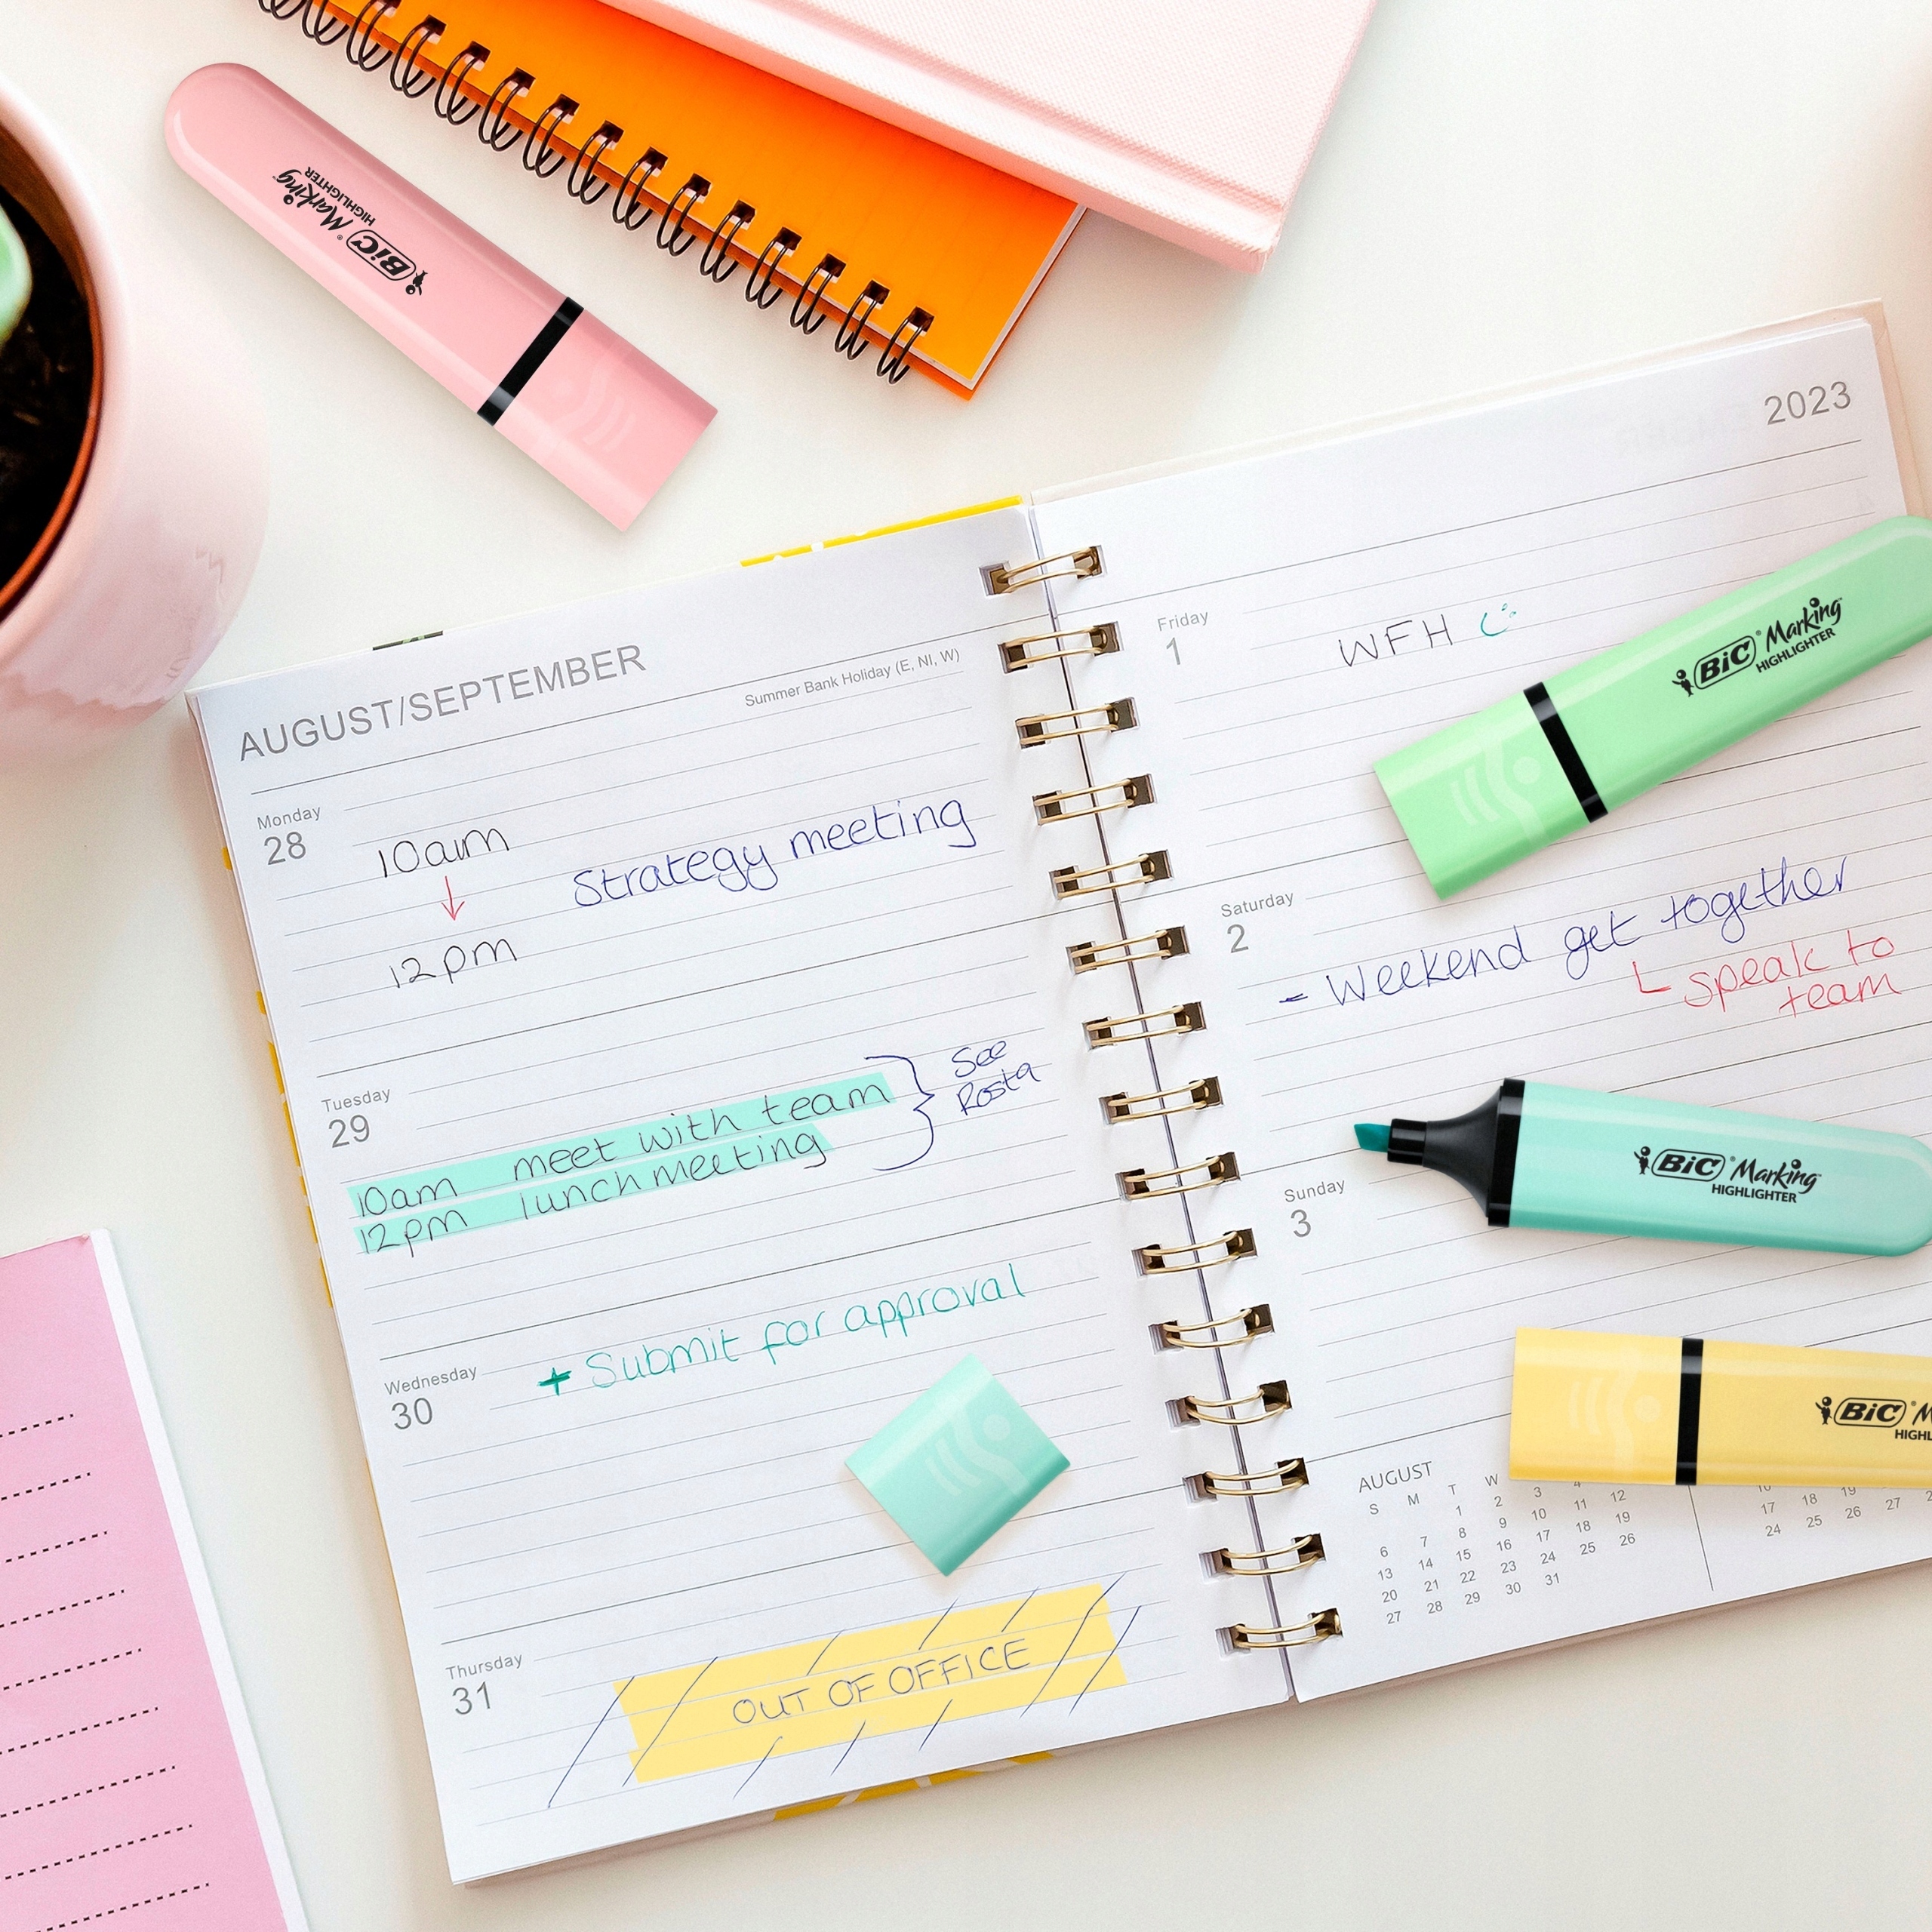 BiC® Marking™
HIGHLIGHTER
AUGUST/SEPTEMBER
Summer Bank Holiday (E, NI, W)
Monday
28
10am
12pm
Strategy meeting
Tuesday
29
10am meet with team
12pm lunch meeting
See
Rosta
Wednesday
30
+ Submit for approval
Thursday
31
OUT OF OFFICE
2023
Friday
1
WFH
BiC® Marking™
HIGHLIGHTER
Saturday
2
- Weekend get together
speak to
team
BiC® Marking™
HIGHLIGHTER
Sunday
3
BiC® M
HIGHL
AUGUST
S M T W
1 2 3 4
6 7 8 9 10 11 12
13 14 15 16 17 18 19
20 21 22 23 24 25 26
27 28 29 30 31
17 18 19
24 25 26 27